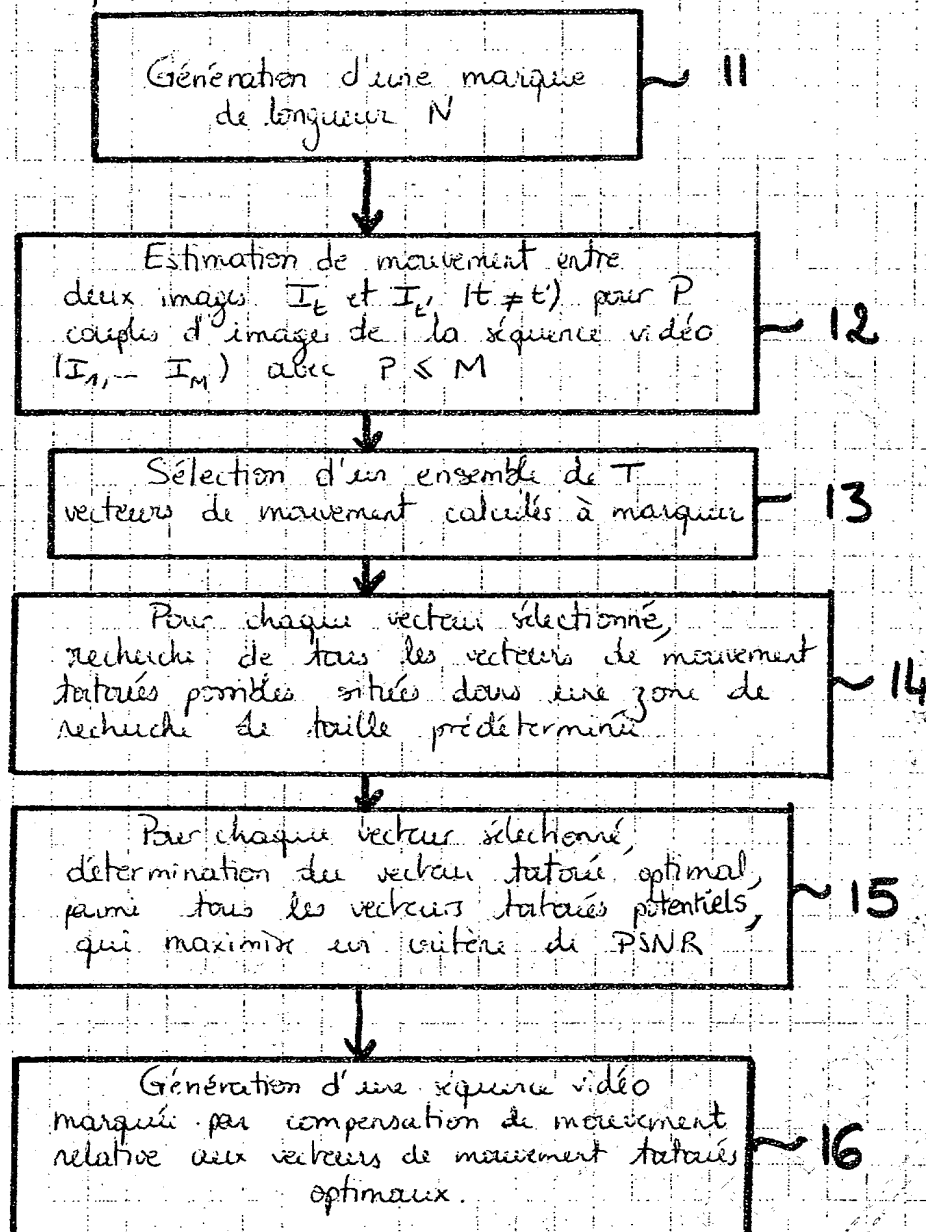 Génération d'une marque
de longueur N
11
Estimation de mouvement entre
deux images I_t et I_t' (t ≠ t') pour P
couples d'images de la séquence vidéo
(I_1, ... I_M) avec P ≤ M
12
Sélection d'un ensemble de T
vecteurs de mouvement calculés à marquer
13
Pour chaque vecteur sélectionné,
recherche de tous les vecteurs de mouvement
tatoués possibles situés dans une zone de
recherche de taille prédéterminée
14
Pour chaque vecteur sélectionné,
détermination du vecteur tatoué optimal,
parmi tous les vecteurs tatoués potentiels,
qui maximise un critère de PSNR
15
Génération d'une séquence vidéo
marquée par compensation de mouvement
relative aux vecteurs de mouvement tatoués
optimaux.
16